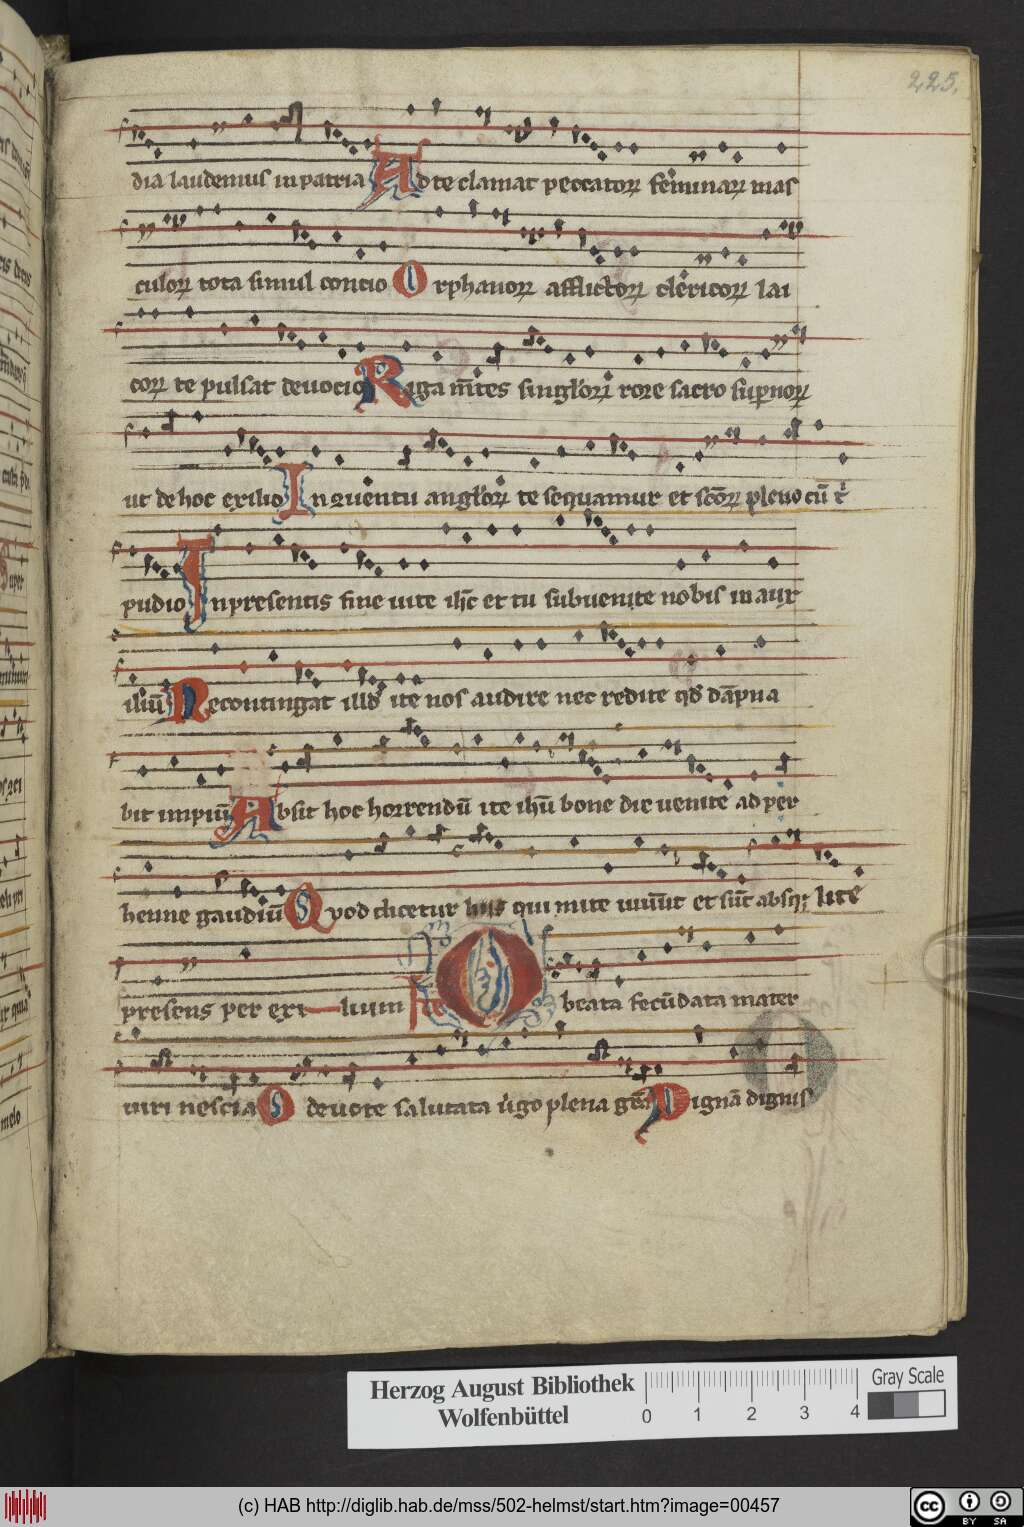 225.
dia laudemus in patria Ad te clamat peccatoꝝ feminaꝝ mas
culoꝝ tota simul concio Orphanoꝝ afflictoꝝ clericoꝝ lai
coꝝ te pulsat deuocio Riga m̄tes singloꝝ rore sacro supnoꝝ
ut de hoc exilio In quentu angloꝝ te sequamur et sc̄oꝝ pleno cū t
pudio In presentis fine uite ih̄c et tu subuenite nobis in aux
iliū Ne contingat illd ite nos audire nec redite qd dāpna
bit impiū Absit hoc horrendū ite ih̄u bone dic uenite ad per
henne gaudiū Quod dicetur hiis qui mite uiuūt et sūt absqꝫ lite
presens per exi lium Ite O beata fecūdata mater
uiri nescia O deuote salutata ugo plena gr̄a Dignā dignis
Herzog August Bibliothek
Wolfenbüttel
0 1 2 3 4
Gray Scale
(c) HAB http://diglib.hab.de/mss/502-helmst/start.htm?image=00457
cc BY SA